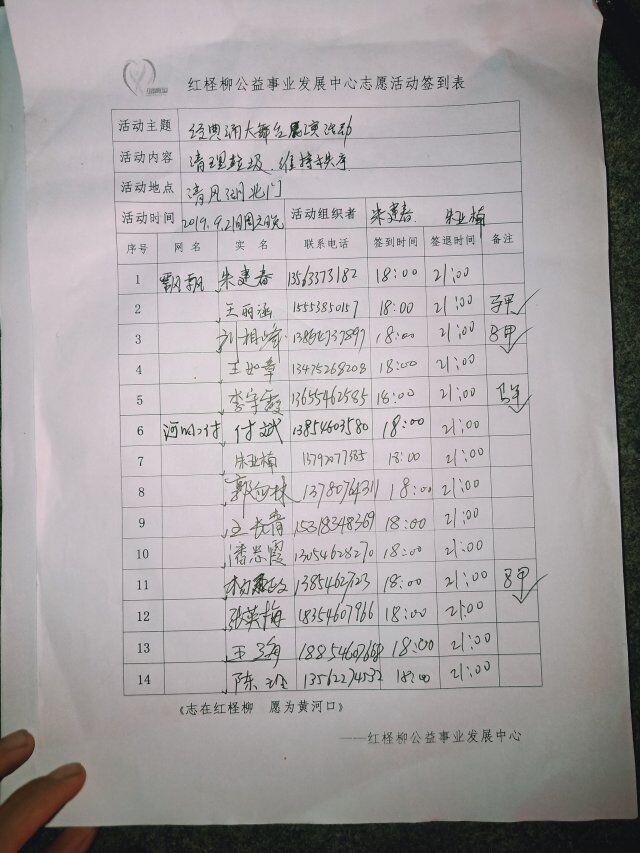 红柽柳公益事业发展中心志愿活动签到表
活动主题 经典诵大舞台展演活动
活动内容 清理垃圾、维持秩序
活动地点 清风湖北门
活动时间 2019.9.21日周六晚 活动组织者 朱建春 朱亚楠
序号 网名 实名 联系电话 签到时间 签退时间 备注
1 飘飘 朱建春 13563373182 18:00 21:00
2 王丽涵 15553850157 18:00 21:00
3 18:00 21:00
4 王如章 13475268208 18:00 21:00
5 李宇霞 13655462585 18:00 21:00
6 付斌 13854603580 18:00 21:00
7 朱亚楠 18:00 21:00
8 18:00 21:00
9 王长青 15318348369 18:00 21:00
10 潘思霞 13054628270 18:00 21:00
11 18:00 21:00
12 张英梅 18354607966 18:00 21:00
13 王海 18:00 21:00
14 陈 13562274532 18:00 21:00
《志在红柽柳 愿为黄河口》
——红柽柳公益事业发展中心